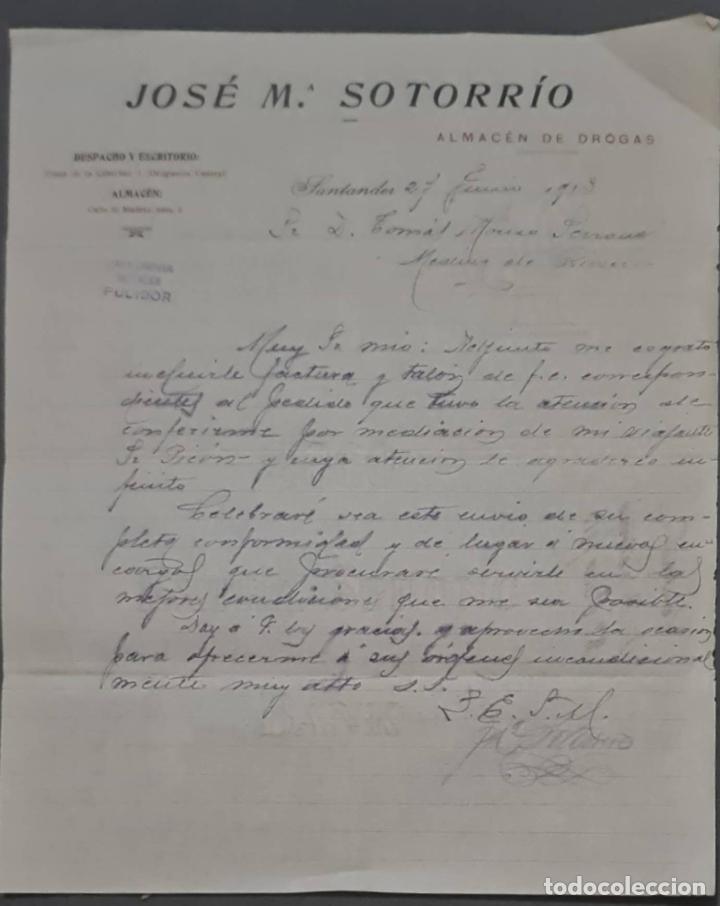 JOSÉ M.ª SOTORRÍO
ALMACÉN DE DROGAS
DESPACHO Y ESCRITORIO:
Plaza de la Libertad 1, (Droguería Central)
ALMACÉN:
Calle de Madrid,
Santander 27 Enero 1913
Sr. D. Tomás
Medina de
PULIDOR
Muy Sr mio: Adjunto me es grato
incluirle factura y talón de f.c. correspon-
dientes al pedido que tuvo la atención de
conferirme por mediación de mi viajante
Sr Picón y cuya atención le agradezco in-
finito
Celebraré sea este envio de su com-
pleta conformidad y dé lugar á nuevos en-
cargos que procuraré servirle en las
mejores condiciones que me sea posible.
Doy á V. las gracias y aprovecho la ocasión
para ofrecerme á sus órdenes incondicional
mente muy atto s.s.
todocoleccion
todocoleccion.net